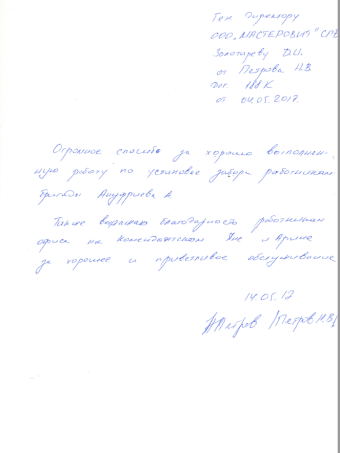 Ген Директору
ООО "МАСТЕРОВИТ"
Золотареву Д.И.
от Петрова Н.В
Дог. 188К
от 04.05.2017
Огромное спасибо за хорошо выполнен-
ную работу по установке забора работникам
бригады Ануфриева А
Также выражаю благодарность работникам
офиса на и Арине
за хорошее и приветливое обслуживание
14.05.17
Петров /Петров Н.В/